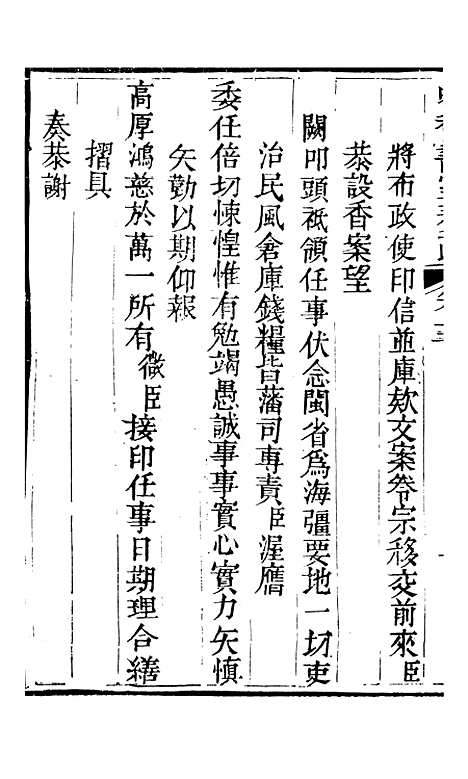 將布政使印信並庫欵文案卷宗移交前來臣
恭設香案望
闕叩頭祗領任事伏念閩省爲海疆要地一切吏
治民風倉庫錢糧皆藩司專責臣渥膺
委任倍切悚惶惟有勉竭愚誠事事實心實力矢慎
矢勤以期仰報
高厚鴻慈於萬一所有微臣接印任事日期理合繕
摺具
奏恭謝